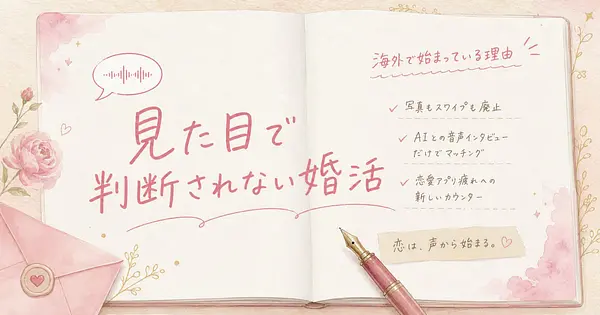 見た目で
判断されない婚活
海外で始まっている理由
写真もスワイプも廃止
AIとの音声インタビュー
だけでマッチング
恋愛アプリ疲れへの
新しいカウンター
恋は、声から始まる。